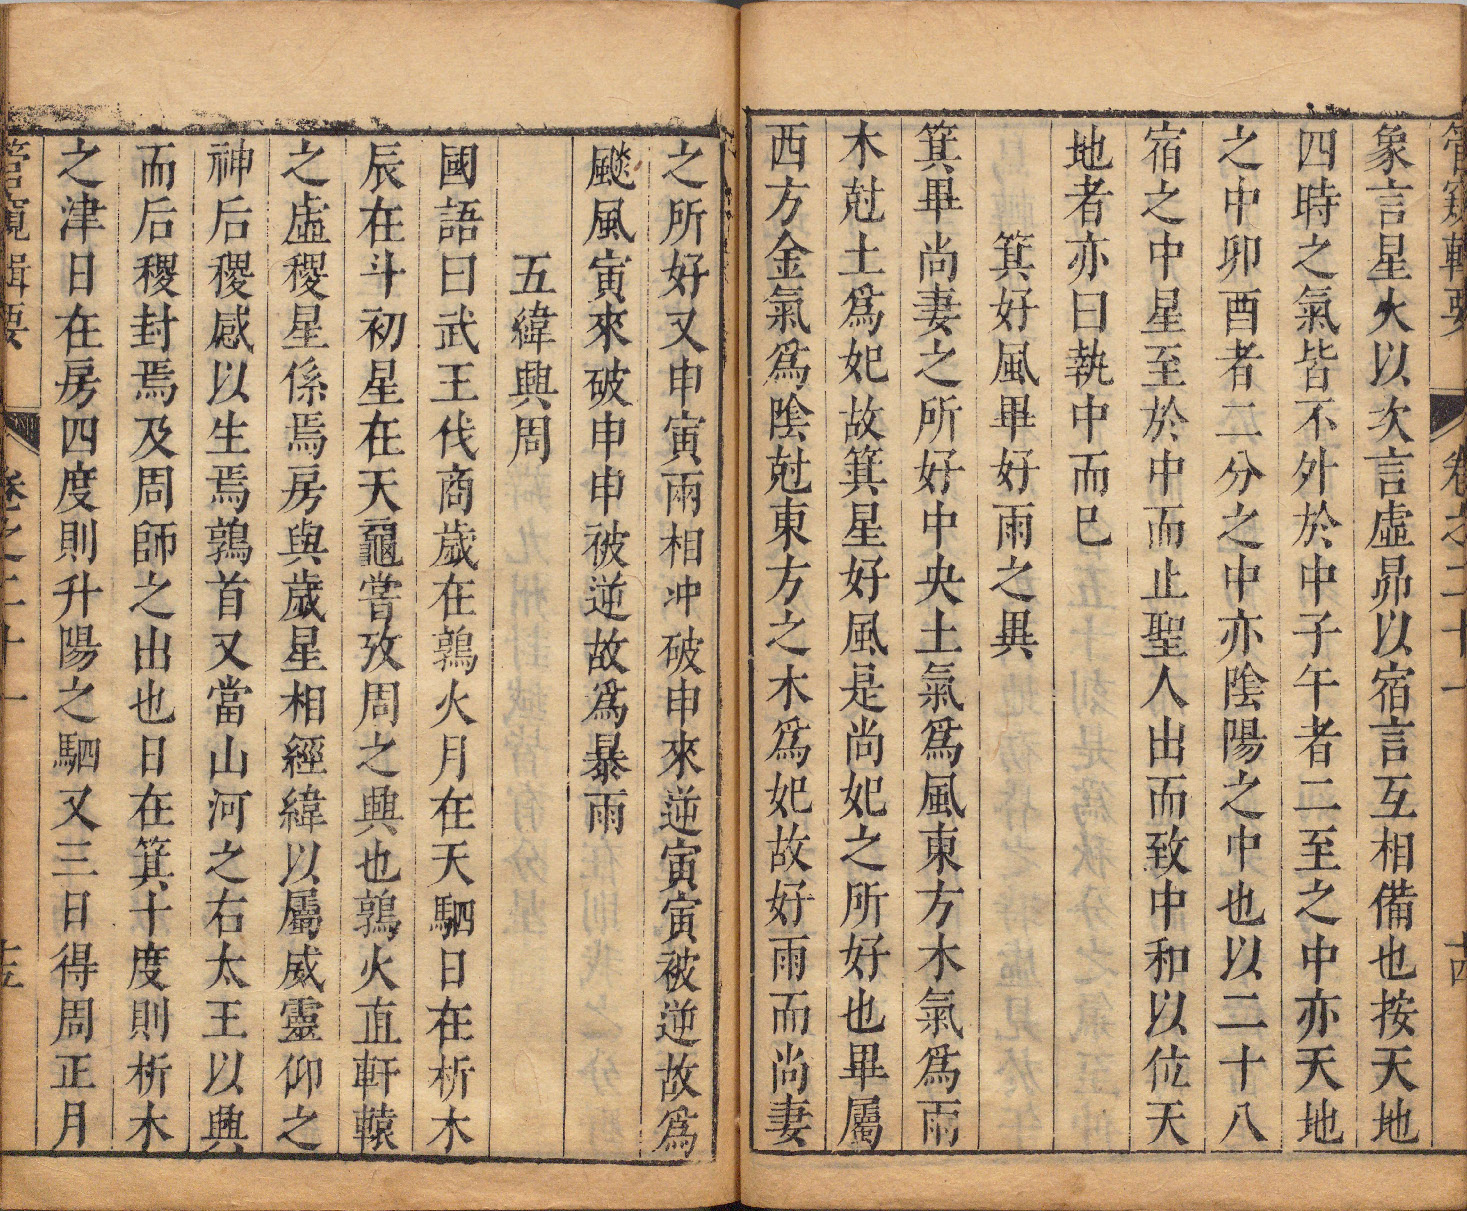 管窺輯要
卷之二十一
十四
象言星火以次言虛昴以宿言互相備也按天地
四時之氣皆不外於中子午者二至之中亦天地
之中卯酉者二分之中亦陰陽之中也以二十八
宿之中星至於中而止聖人出而致中和以位天
地者亦曰執中而已
箕好風畢好雨之異
箕畢尚妻之所好中央土氣爲風東方木氣爲雨
木尅土爲妃故箕星好風是尚妃之所好也畢屬
西方金氣爲陰尅東方之木爲妃故好雨而尚妻
之所好又申寅兩相冲破申來逆寅寅被逆故爲
颷風寅來破申申被逆故爲暴雨
五緯興周
國語曰武王伐商歲在鶉火月在天駟日在析木
辰在斗初星在天黿嘗攷周之興也鶉火直軒轅
之虛稷星係焉房與歲星相經緯以屬威靈仰之
神后稷感以生焉鶉首又當山河之右太王以興
而后稷封焉及周師之出也日在箕十度則析木
之津日在房四度則升陽之駟又三日得周正月
管窺輯要
卷之二十一
十五